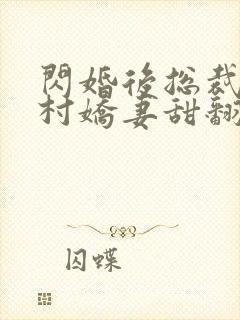 閃婚後總裁
村嬌妻甜翻
囚蝶